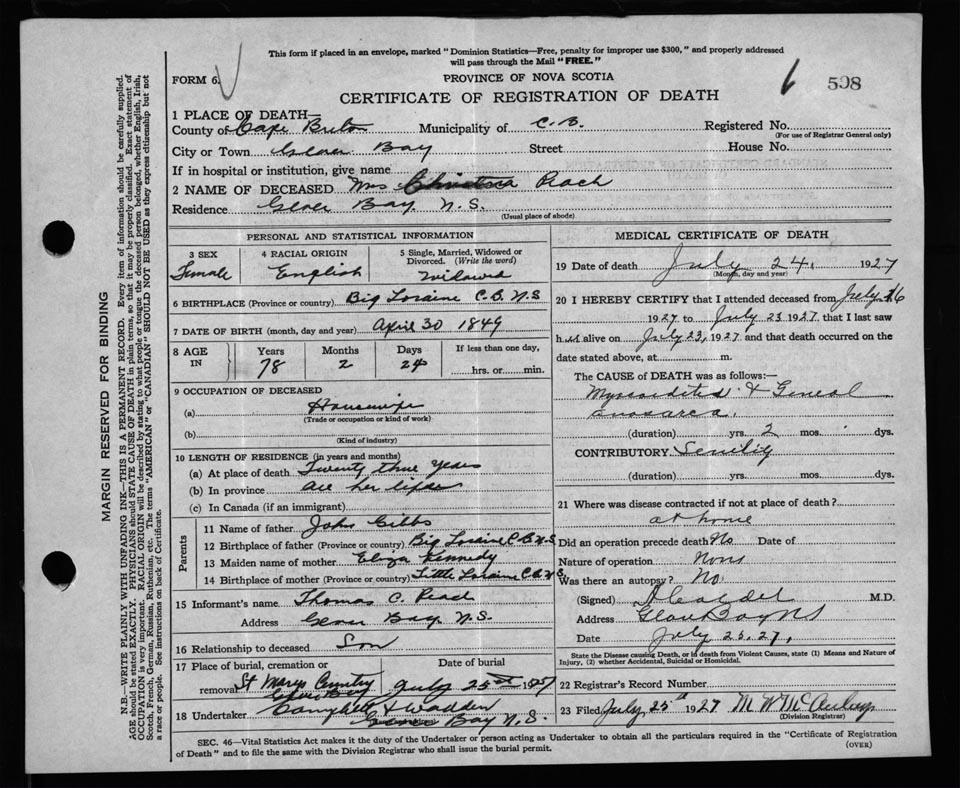 This form if placed in an envelope, marked "Dominion Statistics—Free, penalty for improper use $300," and properly addressed
will pass through the Mail "FREE."
FORM 6.
PROVINCE OF NOVA SCOTIA
598
CERTIFICATE OF REGISTRATION OF DEATH
1 PLACE OF DEATH
County of Cape Breton Municipality of C.B. Registered No.
(For use of Registrar General only)
City or Town Glace Bay Street House No.
If in hospital or institution, give name
2 NAME OF DECEASED Mrs Christena Peach
Residence Glace Bay N.S.
(Usual place of abode)
PERSONAL AND STATISTICAL INFORMATION
3 SEX 4 RACIAL ORIGIN 5 Single, Married, Widowed or Divorced. (Write the word)
Female English Widowed
6 BIRTHPLACE (Province or country) Big Loraine C.B. N.S
7 DATE OF BIRTH (month, day and year) April 30 1849
8 AGE IN Years Months Days If less than one day,
78 2 24 hrs. or min.
9 OCCUPATION OF DECEASED
(a) Housewife
(Trade or occupation or kind of work)
(b)
(Kind of industry)
10 LENGTH OF RESIDENCE (in years and months)
(a) At place of death Twenty three years
(b) In province all her life
(c) In Canada (if an immigrant)
Parents
11 Name of father John Gibbs
12 Birthplace of father (Province or country) Big Loraine C.B. N.S.
13 Maiden name of mother Eliza Kennedy
14 Birthplace of mother (Province or country) Little Loraine C.B. N.S.
15 Informant's name Thomas C. Peach
Address Glace Bay N.S.
16 Relationship to deceased Son
17 Place of burial, cremation or removal Date of burial
St Marys Glace Bay July 25th 1927
18 Undertaker Campbell & Wadden
Glace Bay N.S.
MEDICAL CERTIFICATE OF DEATH
19 Date of death July 24, 1927
(Month, day and year)
20 I HEREBY CERTIFY that I attended deceased from July 16
1927 to July 23 1927 that I last saw
her alive on July 23, 1927 and that death occurred on the
date stated above, at m.
The CAUSE of DEATH was as follows:—
Myocarditis & General
Anasarca.
(duration) yrs. 2 mos. dys.
CONTRIBUTORY Senility
(duration) yrs. mos. dys.
21 Where was disease contracted if not at place of death?
at home
Did an operation precede death No Date of
Nature of operation None
Was there an autopsy? No.
(Signed) M.D.
Address Glace Bay NS
Date July 25. 27,
State the Disease causing Death, or in death from Violent Causes, state (1) Means and Nature of
Injury, (2) whether Accidental, Suicidal or Homicidal.
22 Registrar's Record Number
23 Filed July 25th 1927 M W McAulay
(Division Registrar)
SEC. 46—Vital Statistics Act makes it the duty of the Undertaker or person acting as Undertaker to obtain all the particulars required in the "Certificate of Registration
of Death" and to file the same with the Division Registrar who shall issue the burial permit.
(OVER)
MARGIN RESERVED FOR BINDING
N.B.—WRITE PLAINLY WITH UNFADING INK—THIS IS A PERMANENT RECORD. Every item of information should be carefully supplied.
AGE should be stated EXACTLY. PHYSICIANS should STATE CAUSE OF DEATH in plain terms, so that it may be properly classified. Exact statement of
OCCUPATION is very important. RACIAL ORIGIN will be described by stating to what people or tongue the deceased person belonged, whether English, Irish,
Scotch, French, German, Russian, Ruthenian, etc. The terms "AMERICAN" or "CANADIAN" SHOULD NOT BE USED as they express citizenship but not
a race or people. See instructions on back of Certificate.